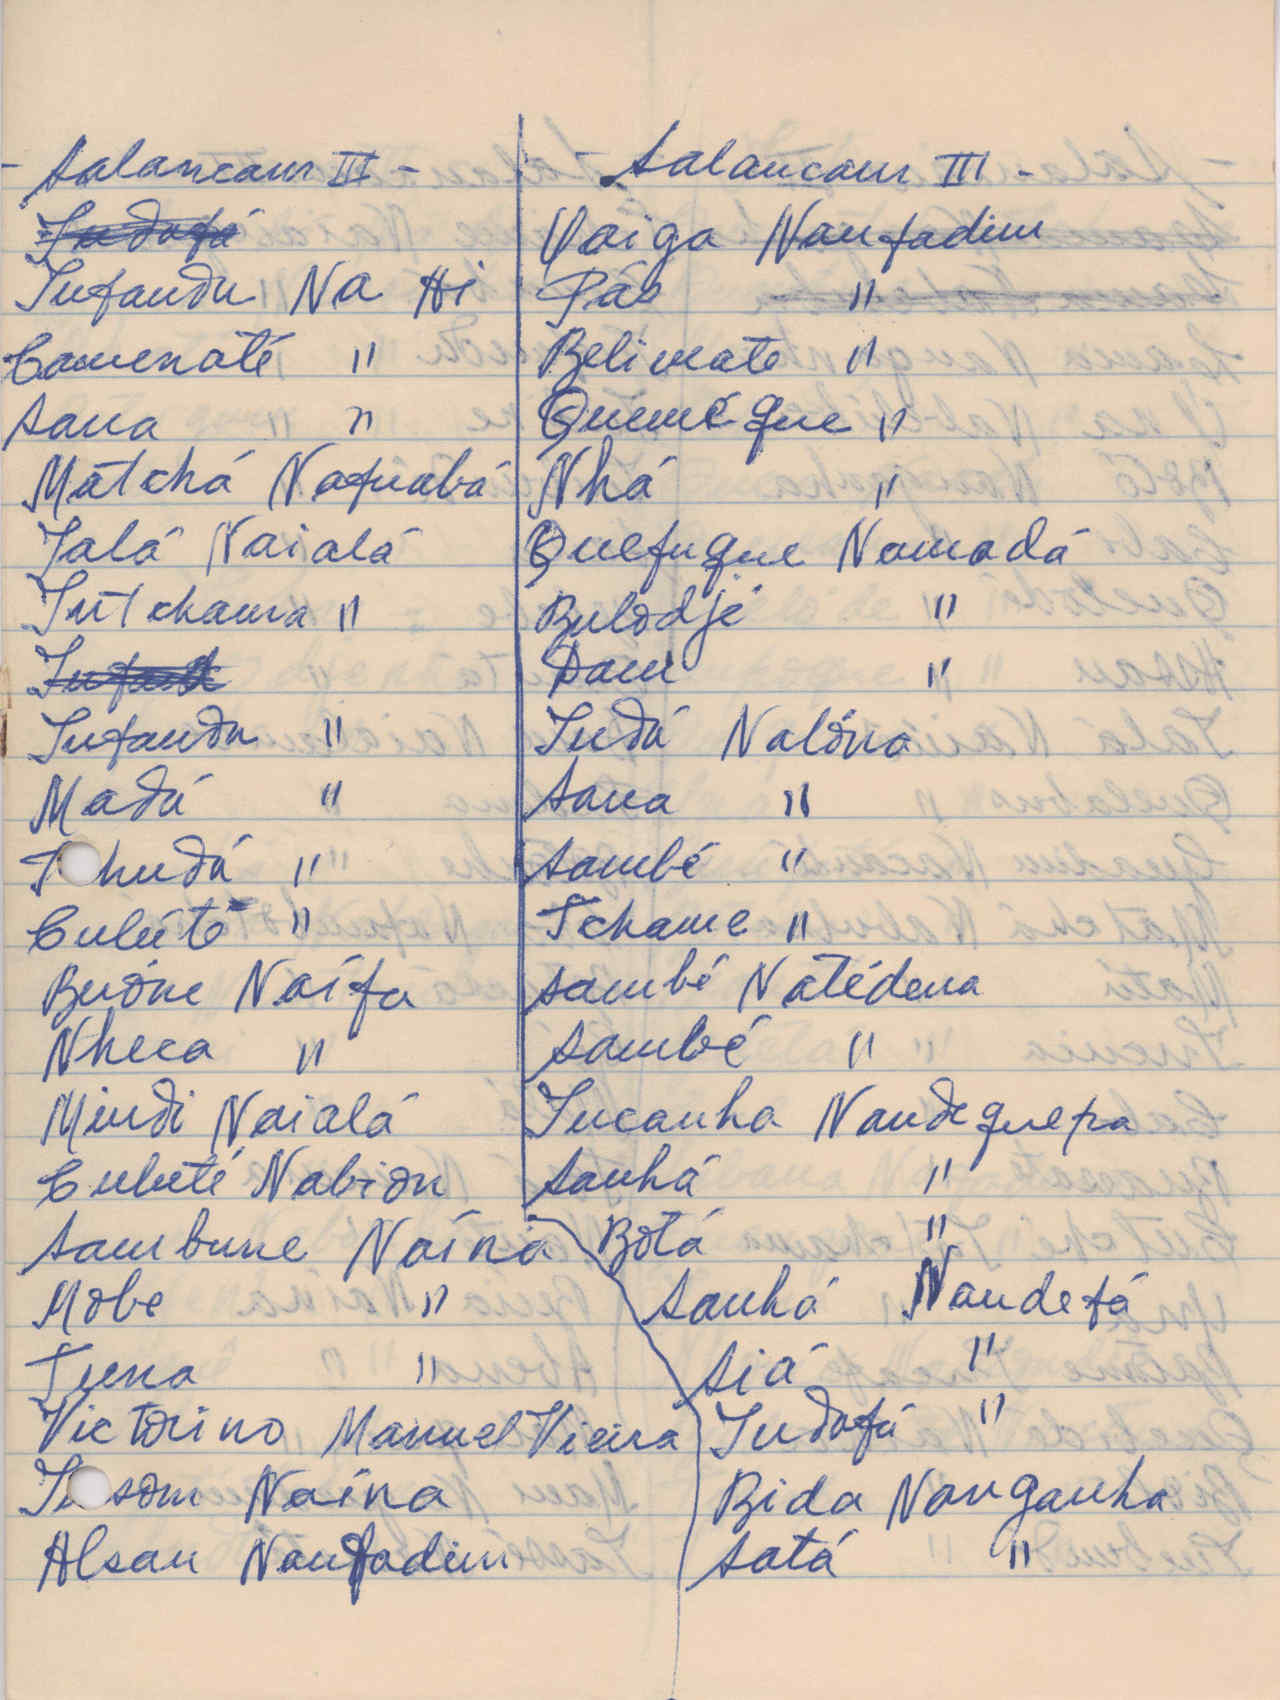 - Salancaur III -
Infandu Na Hi
Camenaté "
Sana "
Matchá Nafuabá
Jalá Naialá
Intchama "
Infandu "
Madú "
Cubúté "
Budne Naífa
Nheca "
Mindi Naialá
Cubuté Nabion
Sambune Naína
Mobe "
Tuna "
Victorino Manuel Vieira
Naína
Alsau Naufadim
- Salancaur III -
Vaiga Naufadim
Pás "
Belimate "
Quemégue "
Nhá "
Quefugue Namadá
Bulodjé "
Dam "
Indú Nalóna
Sana "
Sambé "
Tchame "
Sambé Natédena
Sambé "
Incanha Nandeguepa
Sanhá "
Botá "
Sanhá Naudefá
Siá "
Indafá "
Bida Nanganha
Satá "